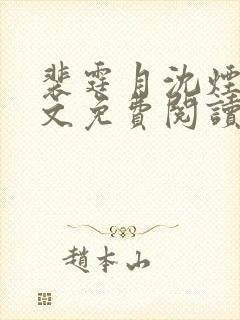 裴霆月沈煙
文免費閱讀
趙本山